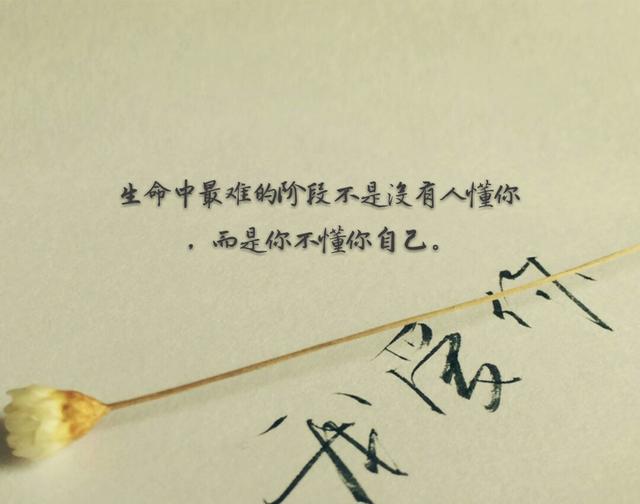 生命中最难的阶段不是沒有人懂你
，而是你不懂你自己。
我